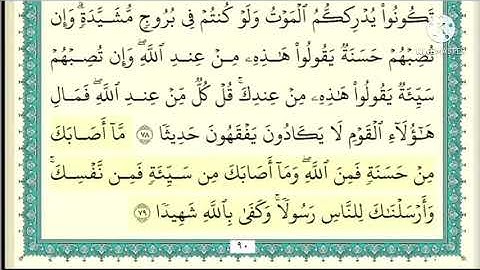 تَكُونُوا۟ يُدْرِككُّمُ ٱلْمَوْتُ وَلَوْ كُنتُمْ فِى بُرُوجٍ مُّشَيَّدَةٍ ۗ وَإِن
تُصِبْهُمْ حَسَنَةٌ يَقُولُوا۟ هَـٰذِهِۦ مِنْ عِندِ ٱللَّهِ ۖ وَإِن تُصِبْهُمْ
سَيِّئَةٌ يَقُولُوا۟ هَـٰذِهِۦ مِنْ عِندِكَ ۚ قُلْ كُلٌّ مِّنْ عِندِ ٱللَّهِ ۖ فَمَالِ
هَـٰٓؤُلَآءِ ٱلْقَوْمِ لَا يَكَادُونَ يَفْقَهُونَ حَدِيثًا ٧٨ مَّآ أَصَابَكَ
مِنْ حَسَنَةٍ فَمِنَ ٱللَّهِ ۖ وَمَآ أَصَابَكَ مِن سَيِّئَةٍ فَمِن نَّفْسِكَ ۚ
وَأَرْسَلْنَـٰكَ لِلنَّاسِ رَسُولًا ۚ وَكَفَىٰ بِٱللَّهِ شَهِيدًا ٧٩
٩٠